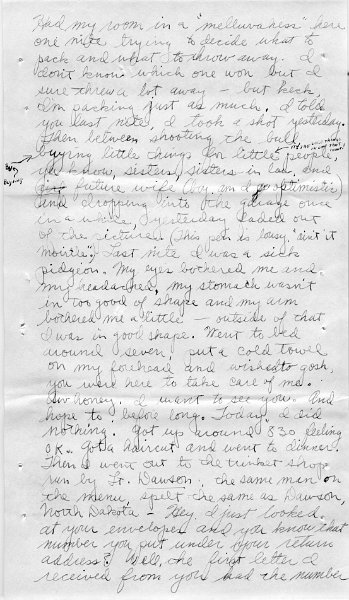 Had my room in a "melluvahess" here
one nite trying to decide what to
pack and what to throw away. I
don't know which one won but I
sure threw a lot away - but heck,
I'm packing just as much. I told
you last nite, I took a shot yesterday.
Then between shooting the bull,
buying little things for little people,
you know, sisters, sisters in law, and
future wife (boy, am I optimistic)
and dropping into the garage once
in a while, yesterday faded out
of the picture. (This pen is lousy, "ain't it
Moitle".) Last nite I was a sick
pidgeon. My eyes bothered me and
my head ached, my stomach wasn't
in too good of shape and my arm
bothered me a little - outside of that
I was in good shape. Went to bed
around seven, put a cold towel
on my forehead and wished to gosh,
you were here to take care of me.
Aw honey. I want to see you. And
hope to before long. Today I did
nothing. Got up around 830 feeling
O.K. Got a haircut and went to dinner.
Then I went out to the trinket shop
run by Lt. Dawson, the same man on
the menu, spelt the same as Dawson,
North Dakota - Hey I just looked
at your envelopes and you know that
number you put under your return
address? Well, the first letter I
received from you had the number